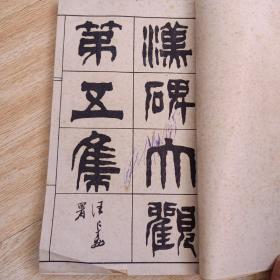 漢碑大觀
第五集
署